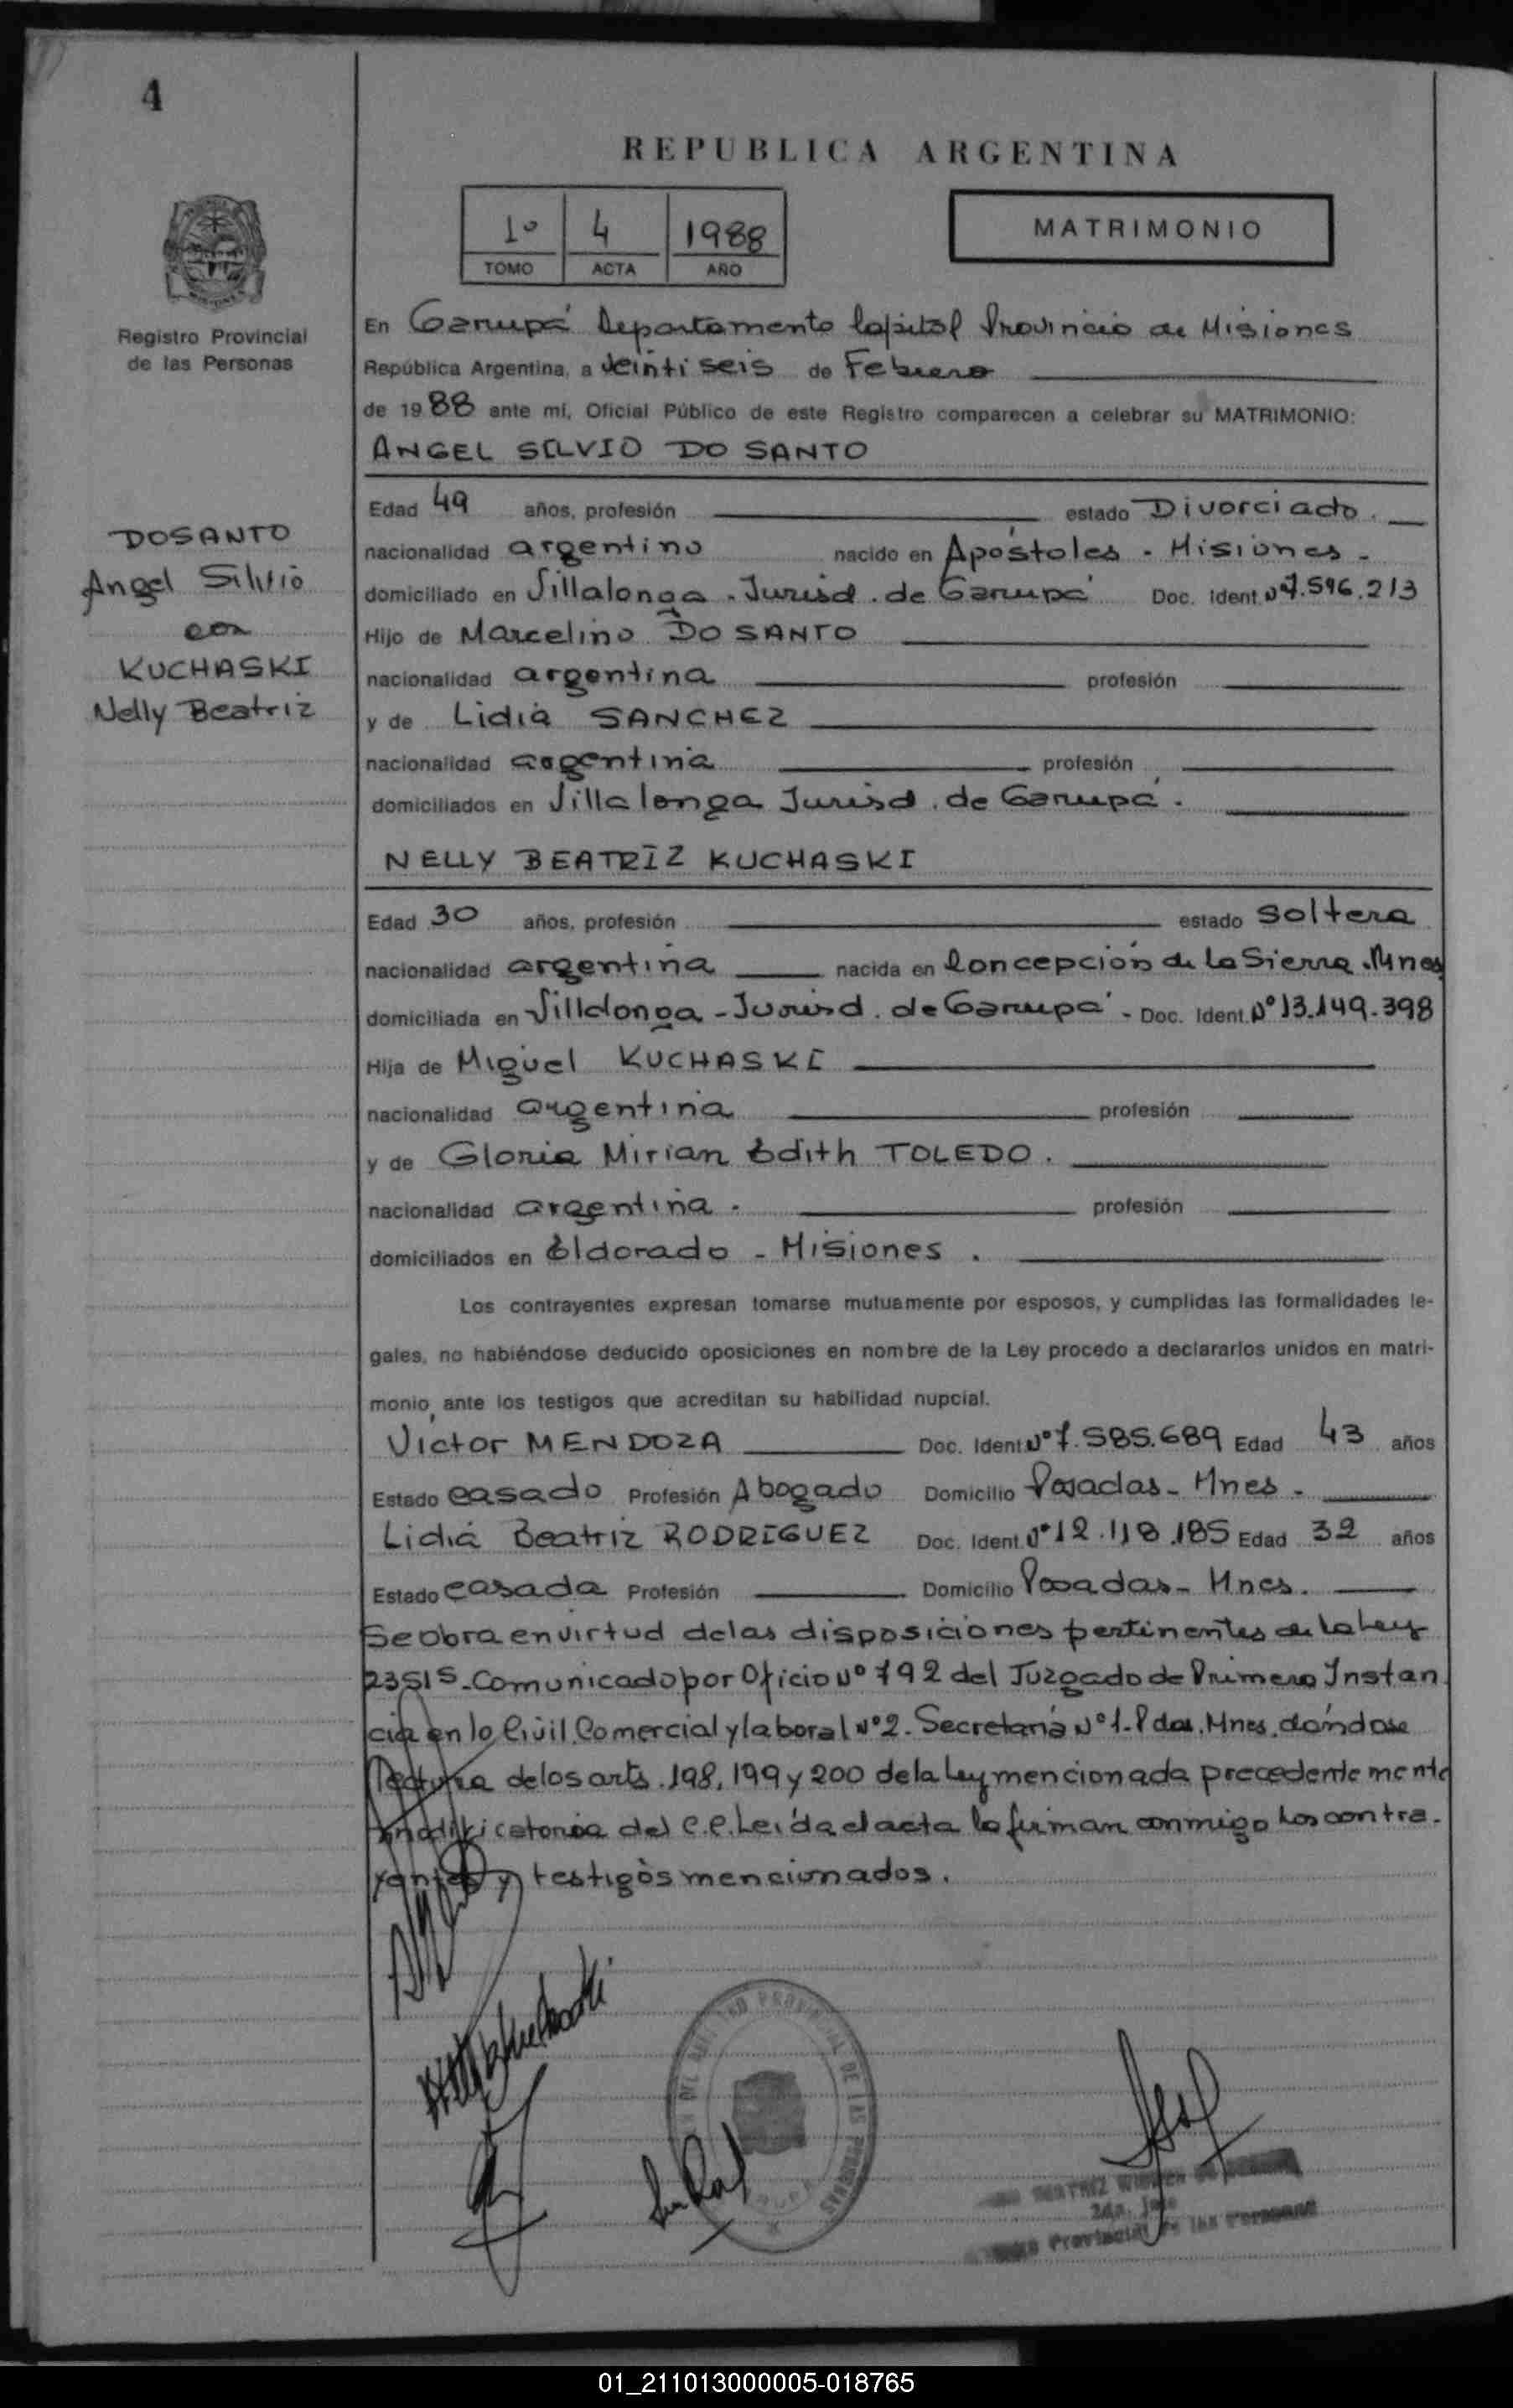 4
REPUBLICA ARGENTINA
1º 4 1988
TOMO ACTA AÑO
MATRIMONIO
Registro Provincial
de las Personas
En Garupá Departamento Capital Provincia de Misiones
República Argentina, a veintiseis de Febrero
de 1988 ante mí, Oficial Público de este Registro comparecen a celebrar su MATRIMONIO:
ANGEL SILVIO DO SANTO
DOSANTO
Angel Silvio
con
KUCHASKI
Nelly Beatriz
Edad 49 años, profesión estado Divorciado.
nacionalidad argentino nacido en Apóstoles - Misiones -
domiciliado en Villalonga - Jurisd. de Garupá Doc. Ident. Nº 7.596.213
Hijo de Marcelino DO SANTO
nacionalidad argentina profesión
y de Lidia SANCHEZ
nacionalidad argentina profesión
domiciliados en Villalonga Jurisd. de Garupá.
NELLY BEATRIZ KUCHASKI
Edad 30 años, profesión estado Soltera
nacionalidad argentina nacida en Concepción de la Sierra. Mnes
domiciliada en Villalonga - Jurisd. de Garupá - Doc. Ident. Nº 13.149.398
Hija de Miguel KUCHASKI
nacionalidad argentina profesión
y de Gloria Mirian Edith TOLEDO.
nacionalidad argentina. profesión
domiciliados en Eldorado - Misiones.
Los contrayentes expresan tomarse mutuamente por esposos, y cumplidas las formalidades le-
gales, no habiéndose deducido oposiciones en nombre de la Ley procedo a declararlos unidos en matri-
monio, ante los testigos que acreditan su habilidad nupcial.
Victor MENDOZA Doc. Ident. Nº 7.585.689 Edad 43 años
Estado casado Profesión Abogado Domicilio Posadas - Mnes.
Lidia Beatriz RODRIGUEZ Doc. Ident. Nº 12.118.185 Edad 32 años
Estado casada Profesión Domicilio Posadas - Mnes.
Se obra en virtud de las disposiciones pertinentes de la Ley
23515. Comunicado por Oficio Nº 792 del Juzgado de Primera Instan
cia en lo Civil, Comercial y laboral Nº 2. Secretaría Nº 1. Pdas. Mnes. dándose
lectura de los arts. 198, 199 y 200 de la Ley mencionada precedentemente
modificatoria del C.C. Leída el acta la firman conmigo los contra-
yentes y testigos mencionados.
PROVINCIAL DE LAS PERSONAS
BEATRIZ
Provincial de las Personas
01_211013000005-018765